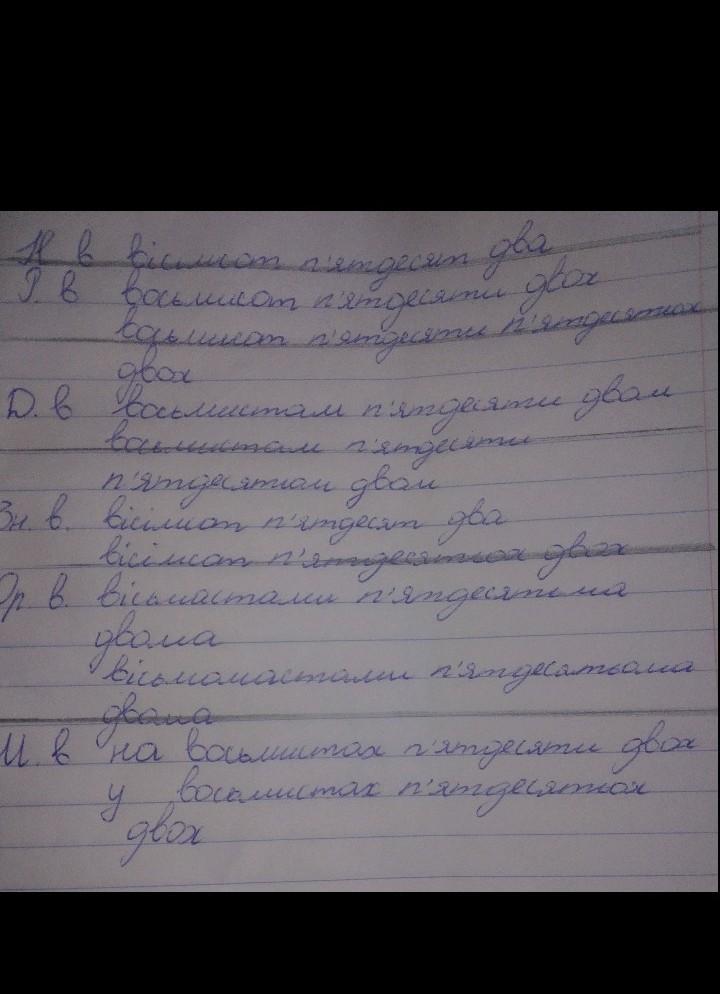 Н в вісімсот п'ятдесят два
Р. в восьмисот п'ятдесяти двох
восьмисот п'ятдесяти п'ятдесятьох
двох
Д. в восьмистам п'ятдесяти двом
восьмистам п'ятдесяти
п'ятдесятьом двом
Зн. в. вісімсот п'ятдесят два
вісімсот п'ятдесятьох двох
Ор. в. вісьмастами п'ятдесятьма
двома
вісьмомастами п'ятдесятьома
двома
М. в на восьмистах п'ятдесяти двох
у восьмистах п'ятдесятьох
двох